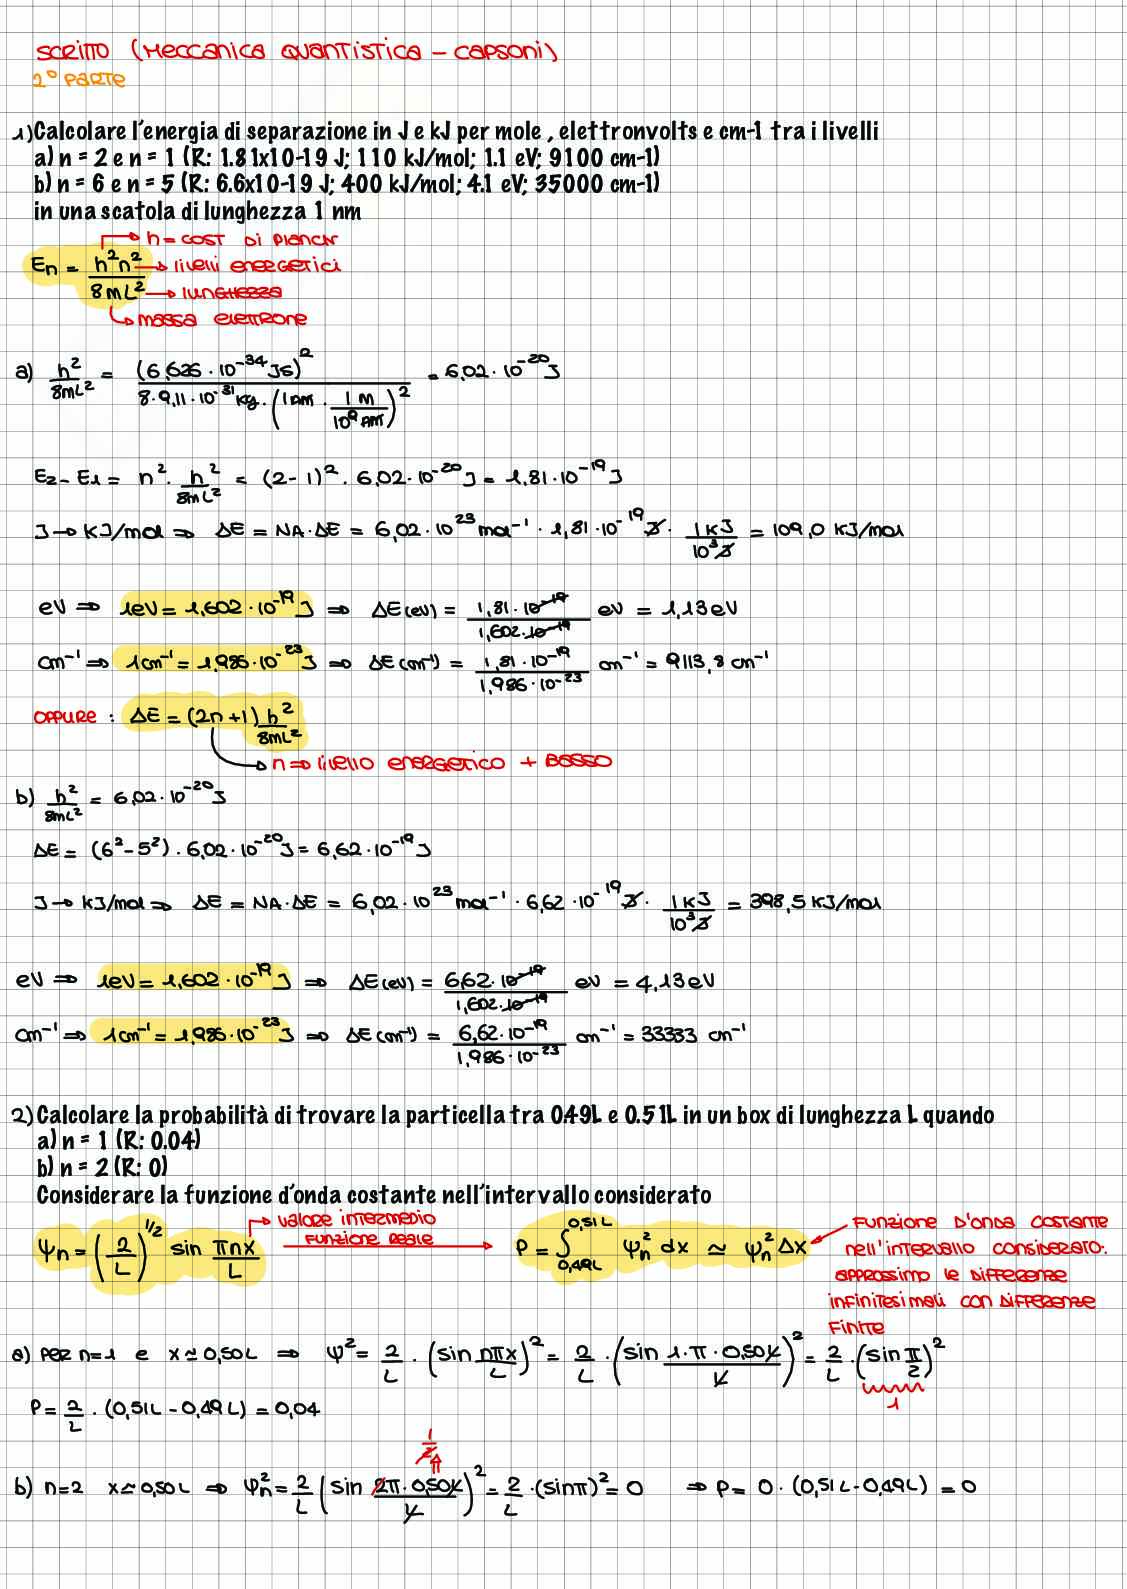 SCRITTO (MECCANICA QUANTISTICA - CAPSONI)
2° PARTE
1) Calcolare l'energia di separazione in J e kJ per mole , elettronvolts e cm-1 tra i livelli
a) n = 2 e n = 1 (R: 1.81x10-19 J; 110 kJ/mol; 1.1 eV; 9100 cm-1)
b) n = 6 e n = 5 (R: 6.6x10-19 J; 400 kJ/mol; 4.1 eV; 35000 cm-1)
in una scatola di lunghezza 1 nm
h = COST DI PLANCK
En = h²n² / 8mL² → livelli energetici
→ lunghezza
→ massa elettrone
a) h²/8mL² = (6,626 · 10⁻³⁴ Js)² / 8 · 9,11 · 10⁻³¹ kg · (1 nm · 1 m / 10⁹ nm)² = 6,02 · 10⁻²⁰ J
E₂ - E₁ = n² · h²/8mL² = (2-1)² · 6,02 · 10⁻²⁰ J = 1,81 · 10⁻¹⁹ J
J → KJ/mol ⇒ ΔE = NA · ΔE = 6,02 · 10²³ mol⁻¹ · 1,81 · 10⁻¹⁹ J · 1 KJ / 10³ J = 109,0 KJ/mol
eV ⇒ 1eV = 1,602 · 10⁻¹⁹ J ⇒ ΔE (eV) = 1,81 · 10⁻¹⁹ / 1,602 · 10⁻¹⁹ eV = 1,13 eV
cm⁻¹ ⇒ 1cm⁻¹ = 1,986 · 10⁻²³ J ⇒ ΔE (cm⁻¹) = 1,81 · 10⁻¹⁹ / 1,986 · 10⁻²³ cm⁻¹ = 9113,8 cm⁻¹
OPPURE : ΔE = (2n+1) h²/8mL²
n ⇒ livello energetico + basso
b) h²/8mL² = 6,02 · 10⁻²⁰ J
ΔE = (6² - 5²) · 6,02 · 10⁻²⁰ J = 6,62 · 10⁻¹⁹ J
J → KJ/mol ⇒ ΔE = NA · ΔE = 6,02 · 10²³ mol⁻¹ · 6,62 · 10⁻¹⁹ J · 1 KJ / 10³ J = 398,5 KJ/mol
eV ⇒ 1eV = 1,602 · 10⁻¹⁹ J ⇒ ΔE (eV) = 6,62 · 10⁻¹⁹ / 1,602 · 10⁻¹⁹ eV = 4,13 eV
cm⁻¹ ⇒ 1cm⁻¹ = 1,986 · 10⁻²³ J ⇒ ΔE (cm⁻¹) = 6,62 · 10⁻¹⁹ / 1,986 · 10⁻²³ cm⁻¹ = 33333 cm⁻¹
2) Calcolare la probabilità di trovare la particella tra 0.49L e 0.51L in un box di lunghezza L quando
a) n = 1 (R: 0.04)
b) n = 2 (R: 0)
Considerare la funzione d'onda costante nell'intervallo considerato
valore intermedio
funzione reale
ψn = (2/L)^1/2 sin πnx/L → P = ∫0,49L^0,51L ψn² dx ≃ ψn² Δx
FUNZIONE D'ONDA COSTANTE
nell'intervallo considerato.
approssimo le differenze
infinitesimali con differenze
finite
a) PER n=1 e x ≃ 0,50L ⇒ ψ² = 2/L · (sin nπx/L)² = 2/L · (sin 1·π·0,50L/L)² = 2/L · (sin π/2)²
1
P = 2/L · (0,51L - 0,49L) = 0,04
1/2 π
b) n=2 x ≃ 0,50L ⇒ ψn² = 2/L (sin 2π·0,50L/L)² = 2/L · (sinπ)² = 0 ⇒ P = 0 · (0,51L - 0,49L) = 0